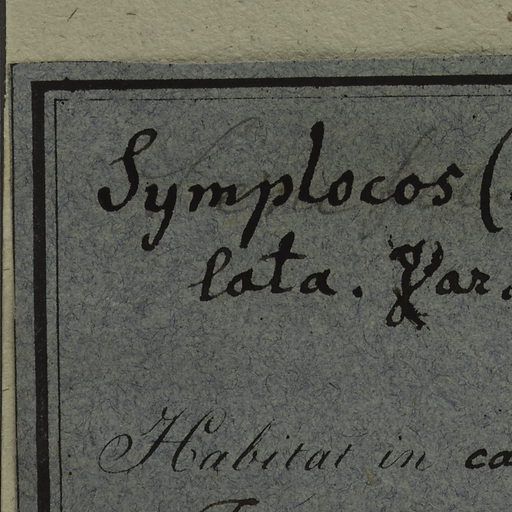 Symplocos (
lata. Var.
Habitat in ca